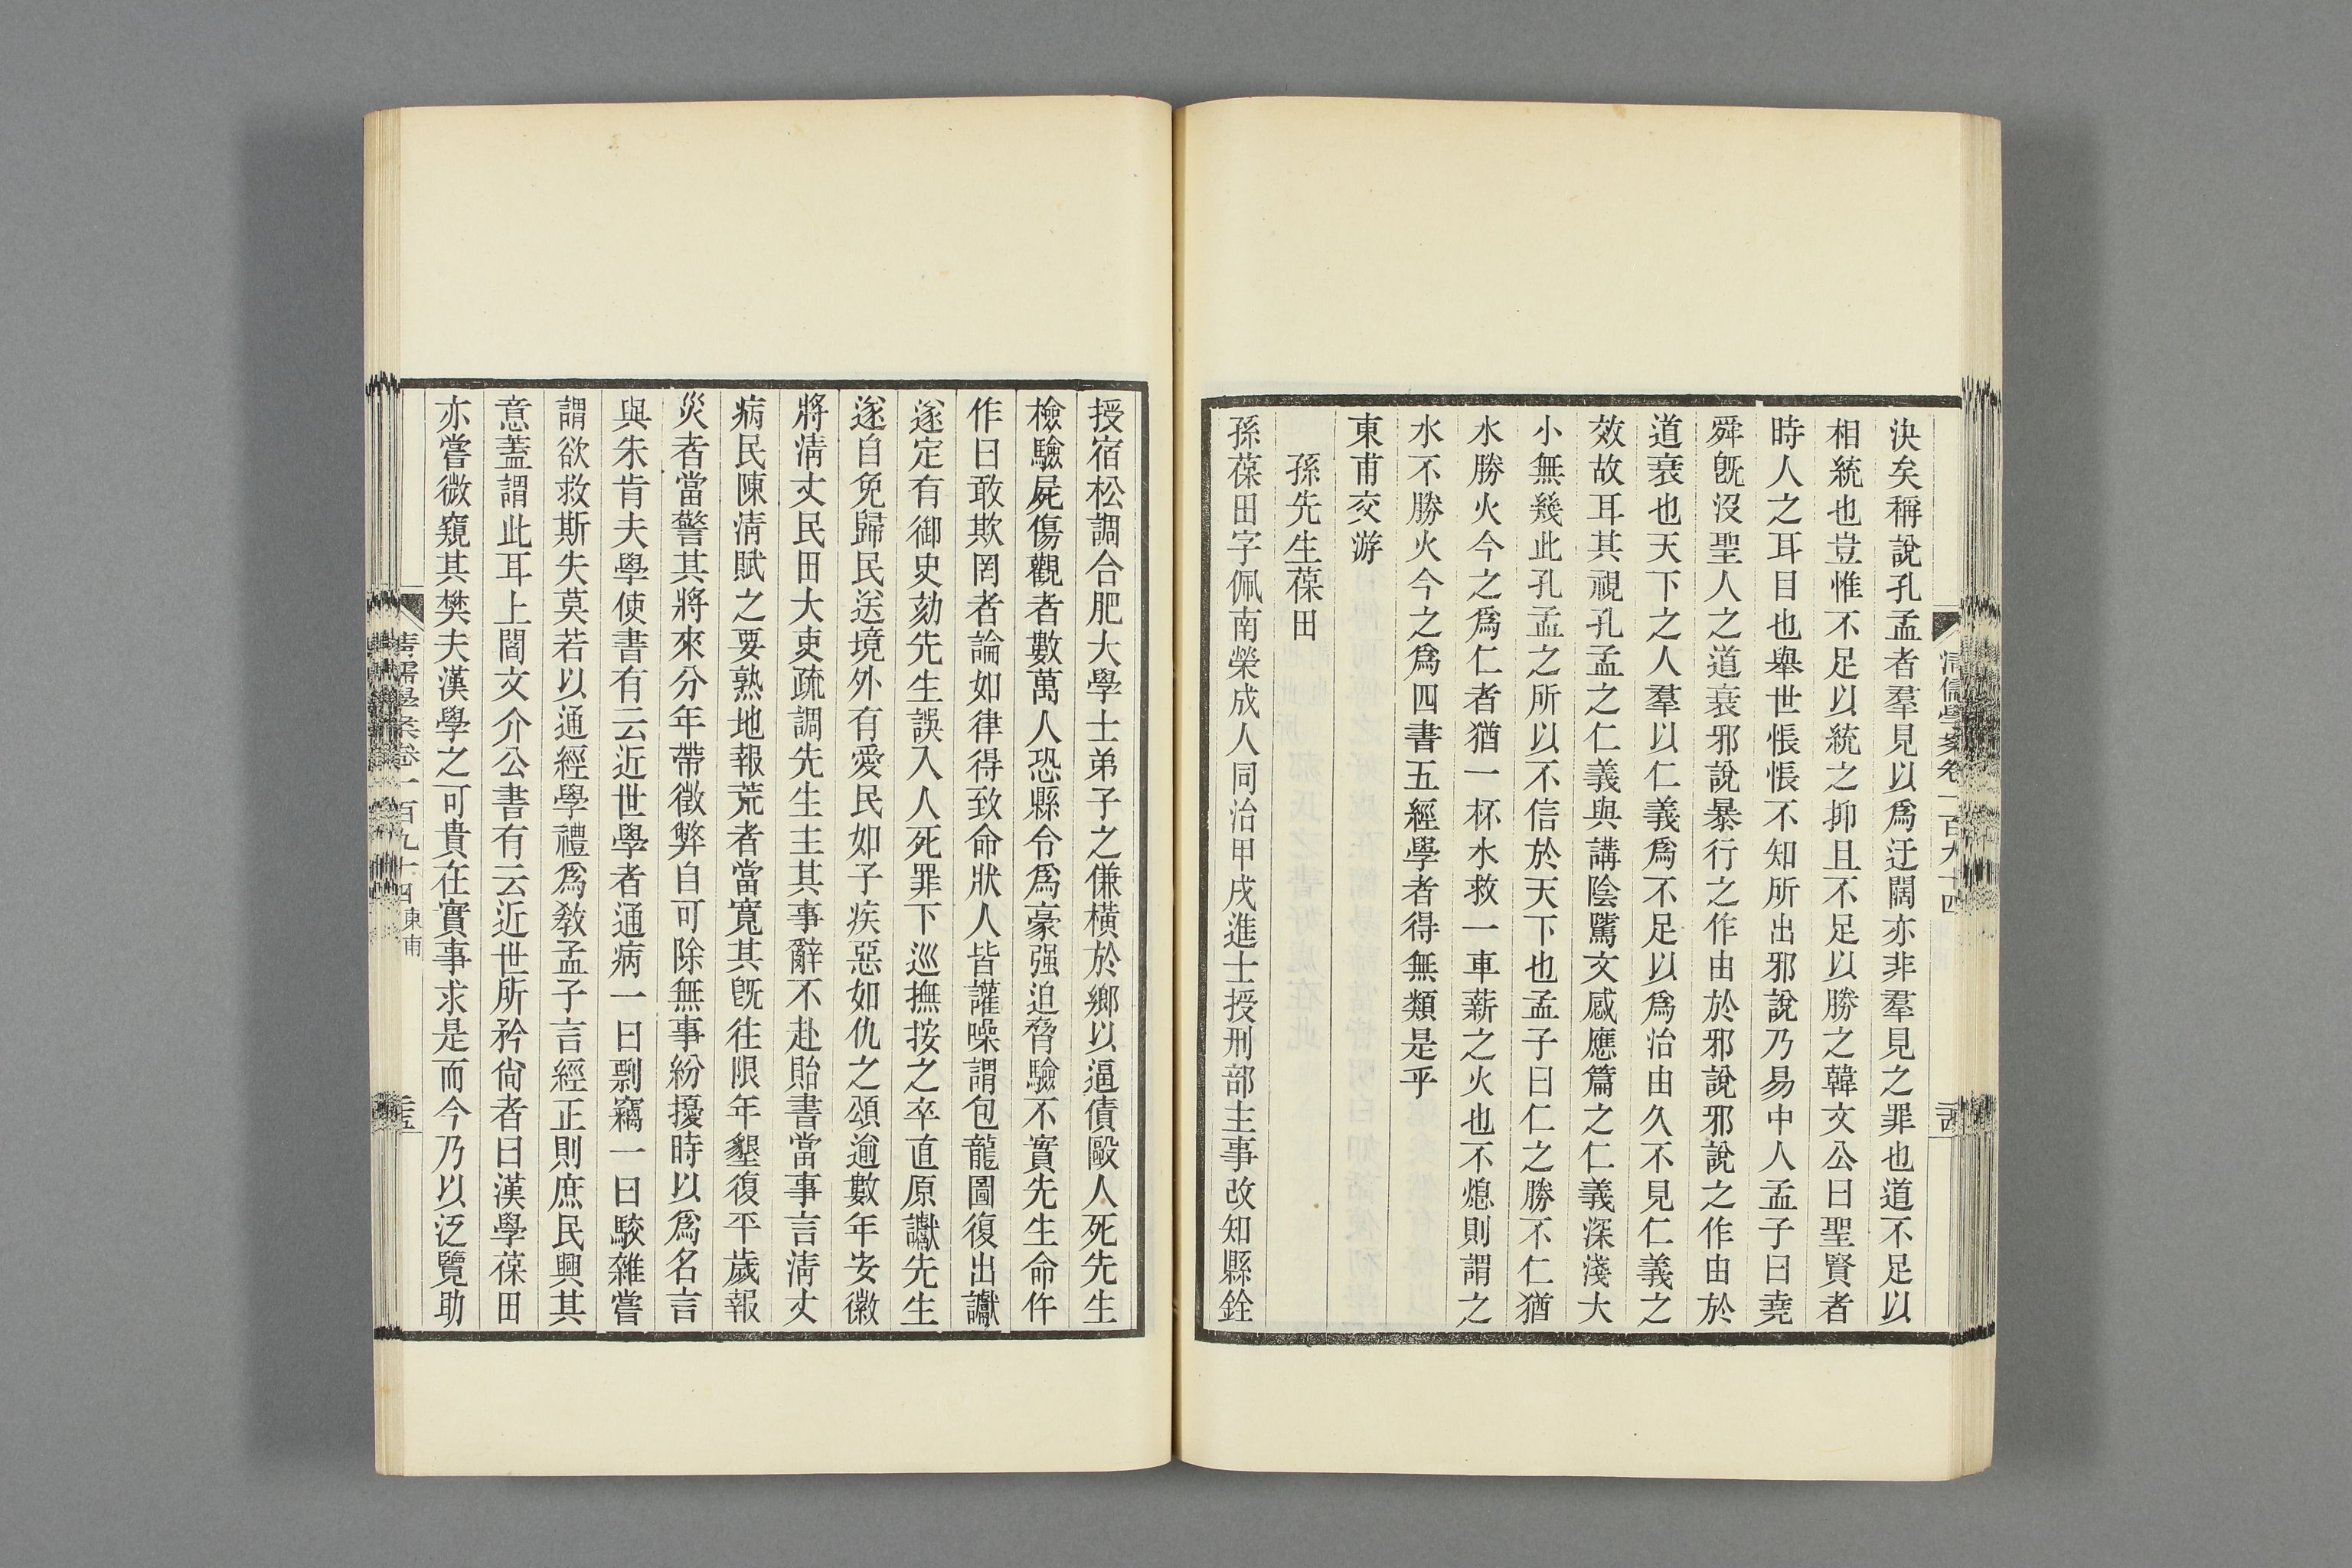 清儒學案卷一百九十四
决矣稱說孔孟者羣見以爲迂闊亦非羣見之罪也道不足以
相統也豈惟不足以統之抑且不足以勝之韓文公曰聖賢者
時人之耳目也舉世悵悵不知所出邪說乃易中人孟子曰堯
舜旣沒聖人之道衰邪說暴行之作由於邪說邪說之作由於
道衰也天下之人羣以仁義爲不足以爲治由久不見仁義之
效故耳其視孔孟之仁義與講陰騭文感應篇之仁義深淺大
小無幾此孔孟之所以不信於天下也孟子曰仁之勝不仁猶
水勝火今之爲仁者猶一杯水救一車薪之火也不熄則謂之
水不勝火今之爲四書五經學者得無類是乎
東甫交游
孫先生葆田
孫葆田字佩南榮成人同治甲戌進士授刑部主事改知縣銓
授宿松調合肥大學士弟子之傔橫於鄉以逼債毆人死先生
檢驗屍傷觀者數萬人恐縣令爲豪强迫脅驗不實先生命仵
作曰敢欺罔者論如律得致命狀人皆讙噪謂包龍圖復出讞
遂定有御史劾先生誤入人死罪下巡撫按之卒直原讞先生
遂自免歸民送境外有愛民如子疾惡如仇之頌逾數年安徽
將淸丈民田大吏疏調先生主其事辭不赴貽書當事言淸丈
病民陳淸賦之要熟地報荒者當寬其旣往限年墾復平歲報
災者當警其將來分年帶徵弊自可除無事紛擾時以爲名言
與朱肯夫學使書有云近世學者通病一曰剽竊一曰駁雜嘗
謂欲救斯失莫若以通經學禮爲敎孟子言經正則庶民興其
意蓋謂此耳上閻文介公書有云近世所矜尙者曰漢學葆田
亦嘗微窺其樊夫漢學之可貴在實事求是而今乃以泛覽助
清儒學案卷一百九十四 東甫